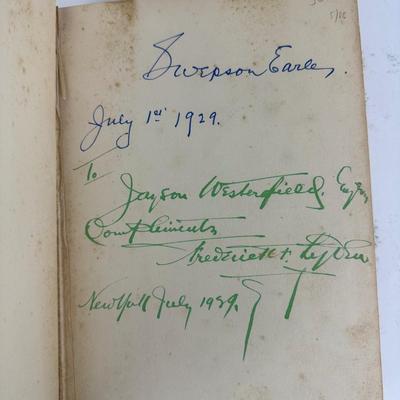 Swepson Earle.
July 1st 1929.
To
Jayson Westerfield, Esq
Compliments
Frederick
New York July 1939.